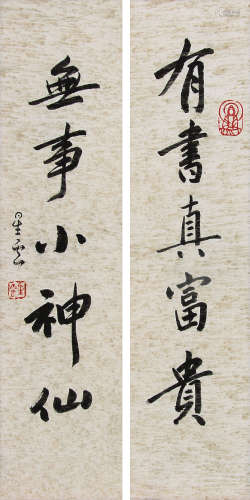 有書真富貴
無事小神仙
星雲